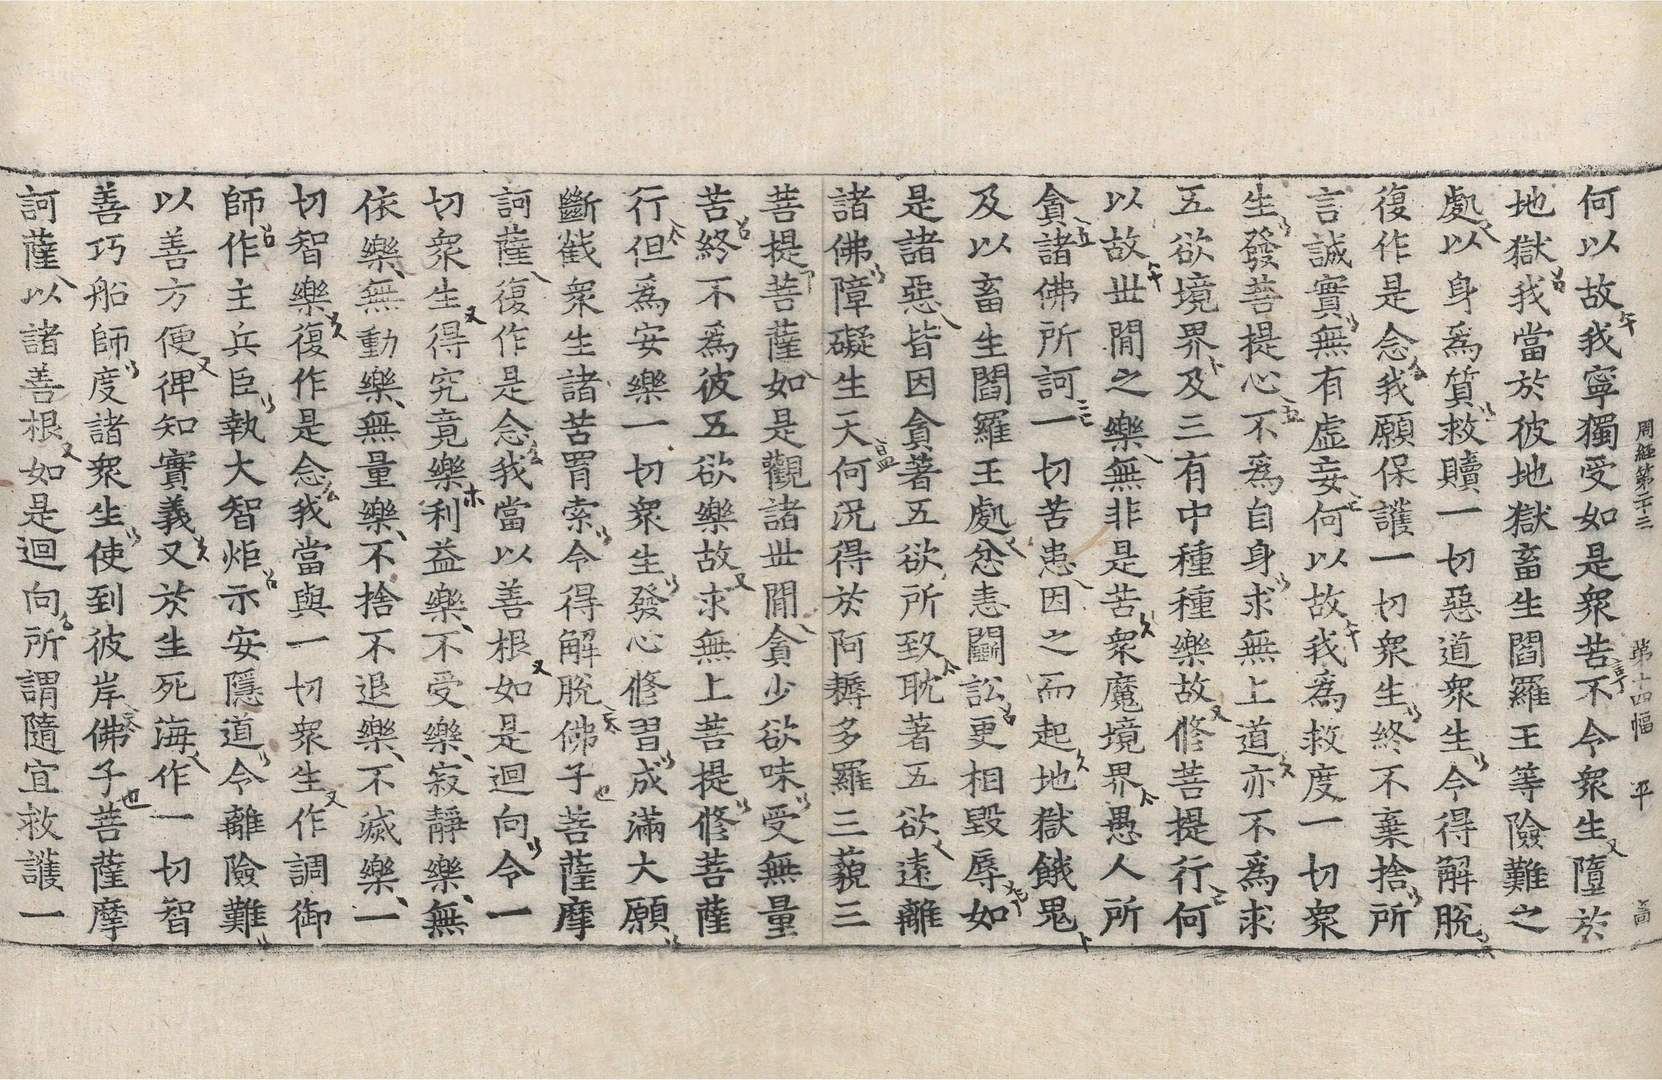 周經第二十三 第十四幅 平
何以故我寧獨受如是衆苦不令衆生墮於
地獄我當於彼地獄畜生閻羅王等險難之
處以身爲質救贖一切惡道衆生令得解脫
復作是念我願保護一切衆生終不棄捨所
言誠實無有虛妄何以故我爲救度一切衆
生發菩提心不爲自身求無上道亦不爲求
五欲境界及三有中種種樂故修菩提行何
以故世閒之樂無非是苦衆魔境界愚人所
貪諸佛所訶一切苦患因之而起地獄餓鬼
及以畜生閻羅王處忿恚鬭訟更相毀辱如
是諸惡皆因貪著五欲所致耽著五欲遠離
諸佛障礙生天何況得於阿耨多羅三藐三
菩提菩薩如是觀諸世閒貪少欲味受無量
苦終不爲彼五欲樂故求無上菩提修菩薩
行但爲安樂一切衆生發心修習成滿大願
斷截衆生諸苦罥索令得解脫佛子菩薩摩
訶薩復作是念我當以善根如是迴向令一
切衆生得究竟樂利益樂不受樂寂靜樂無
依樂無動樂無量樂不捨不退樂不滅樂一
切智樂復作是念我當與一切衆生作調御
師作主兵臣執大智炬示安隱道令離險難
以善方便俾知實義又於生死海作一切智
善巧船師度諸衆生使到彼岸佛子菩薩摩
訶薩以諸善根如是迴向所謂隨宜救護一